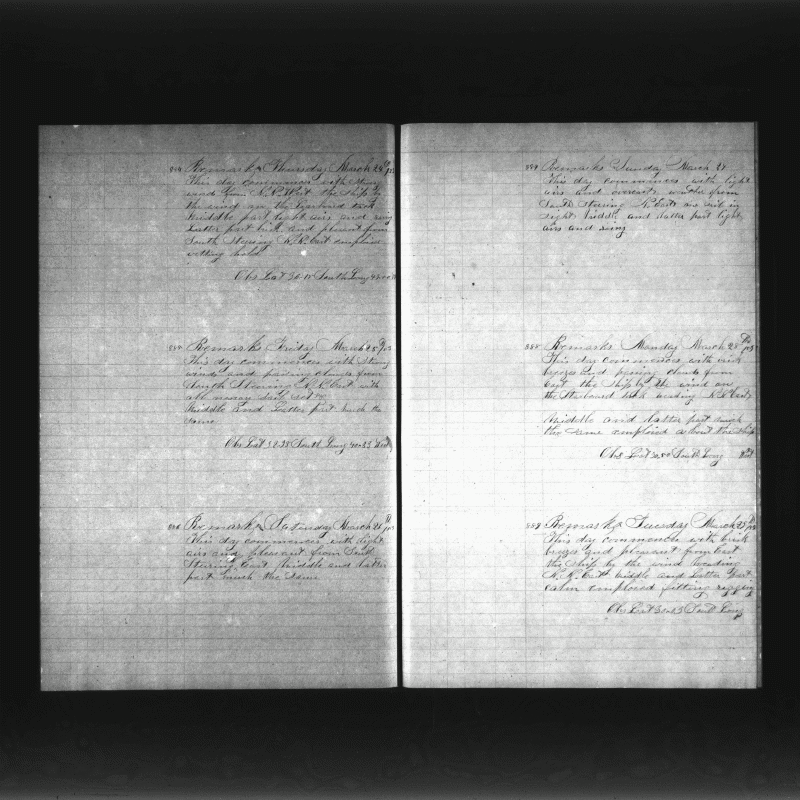 Remarks Thursday March 24
This day commences with strong
wind from N. N. West the Ship by
the wind on the Larboard tack
Middle part light airs and
Latter part brisk and pleasant from
South Steering N. N. East employed
Obs Lat 30.15 South Long
Remarks Friday March 25
This day commences with Strong
winds and passing clouds from
South Steering N. N. East with
all nessary Sail set
Middle and Latter part much the
same
Obs Lat 32.38 South Long West
Remarks Saturday March 26
This day commences with light
airs and pleasant from South
Steering East Middle and latter
part much the Same
Remarks Sunday March 27
This day commences with light
airs and overcast weather from
South Steering N. East one sail in
Sight Middle and Latter part light
airs and
888 Remarks Monday March 28
This day commences with brisk
breezes and passing clouds from
East the Ship by the wind on
the Starboard tack heading
Middle and latter part much
the same employed about the Ship
Obs Lat South Long West
889 Remarks Tuesday March
This day commences with brisk
breezes and pleasant from East
the Ship by the wind heading
N. N. East Middle and Latter Part
calm employed fitting rigging
Obs Lat South Long